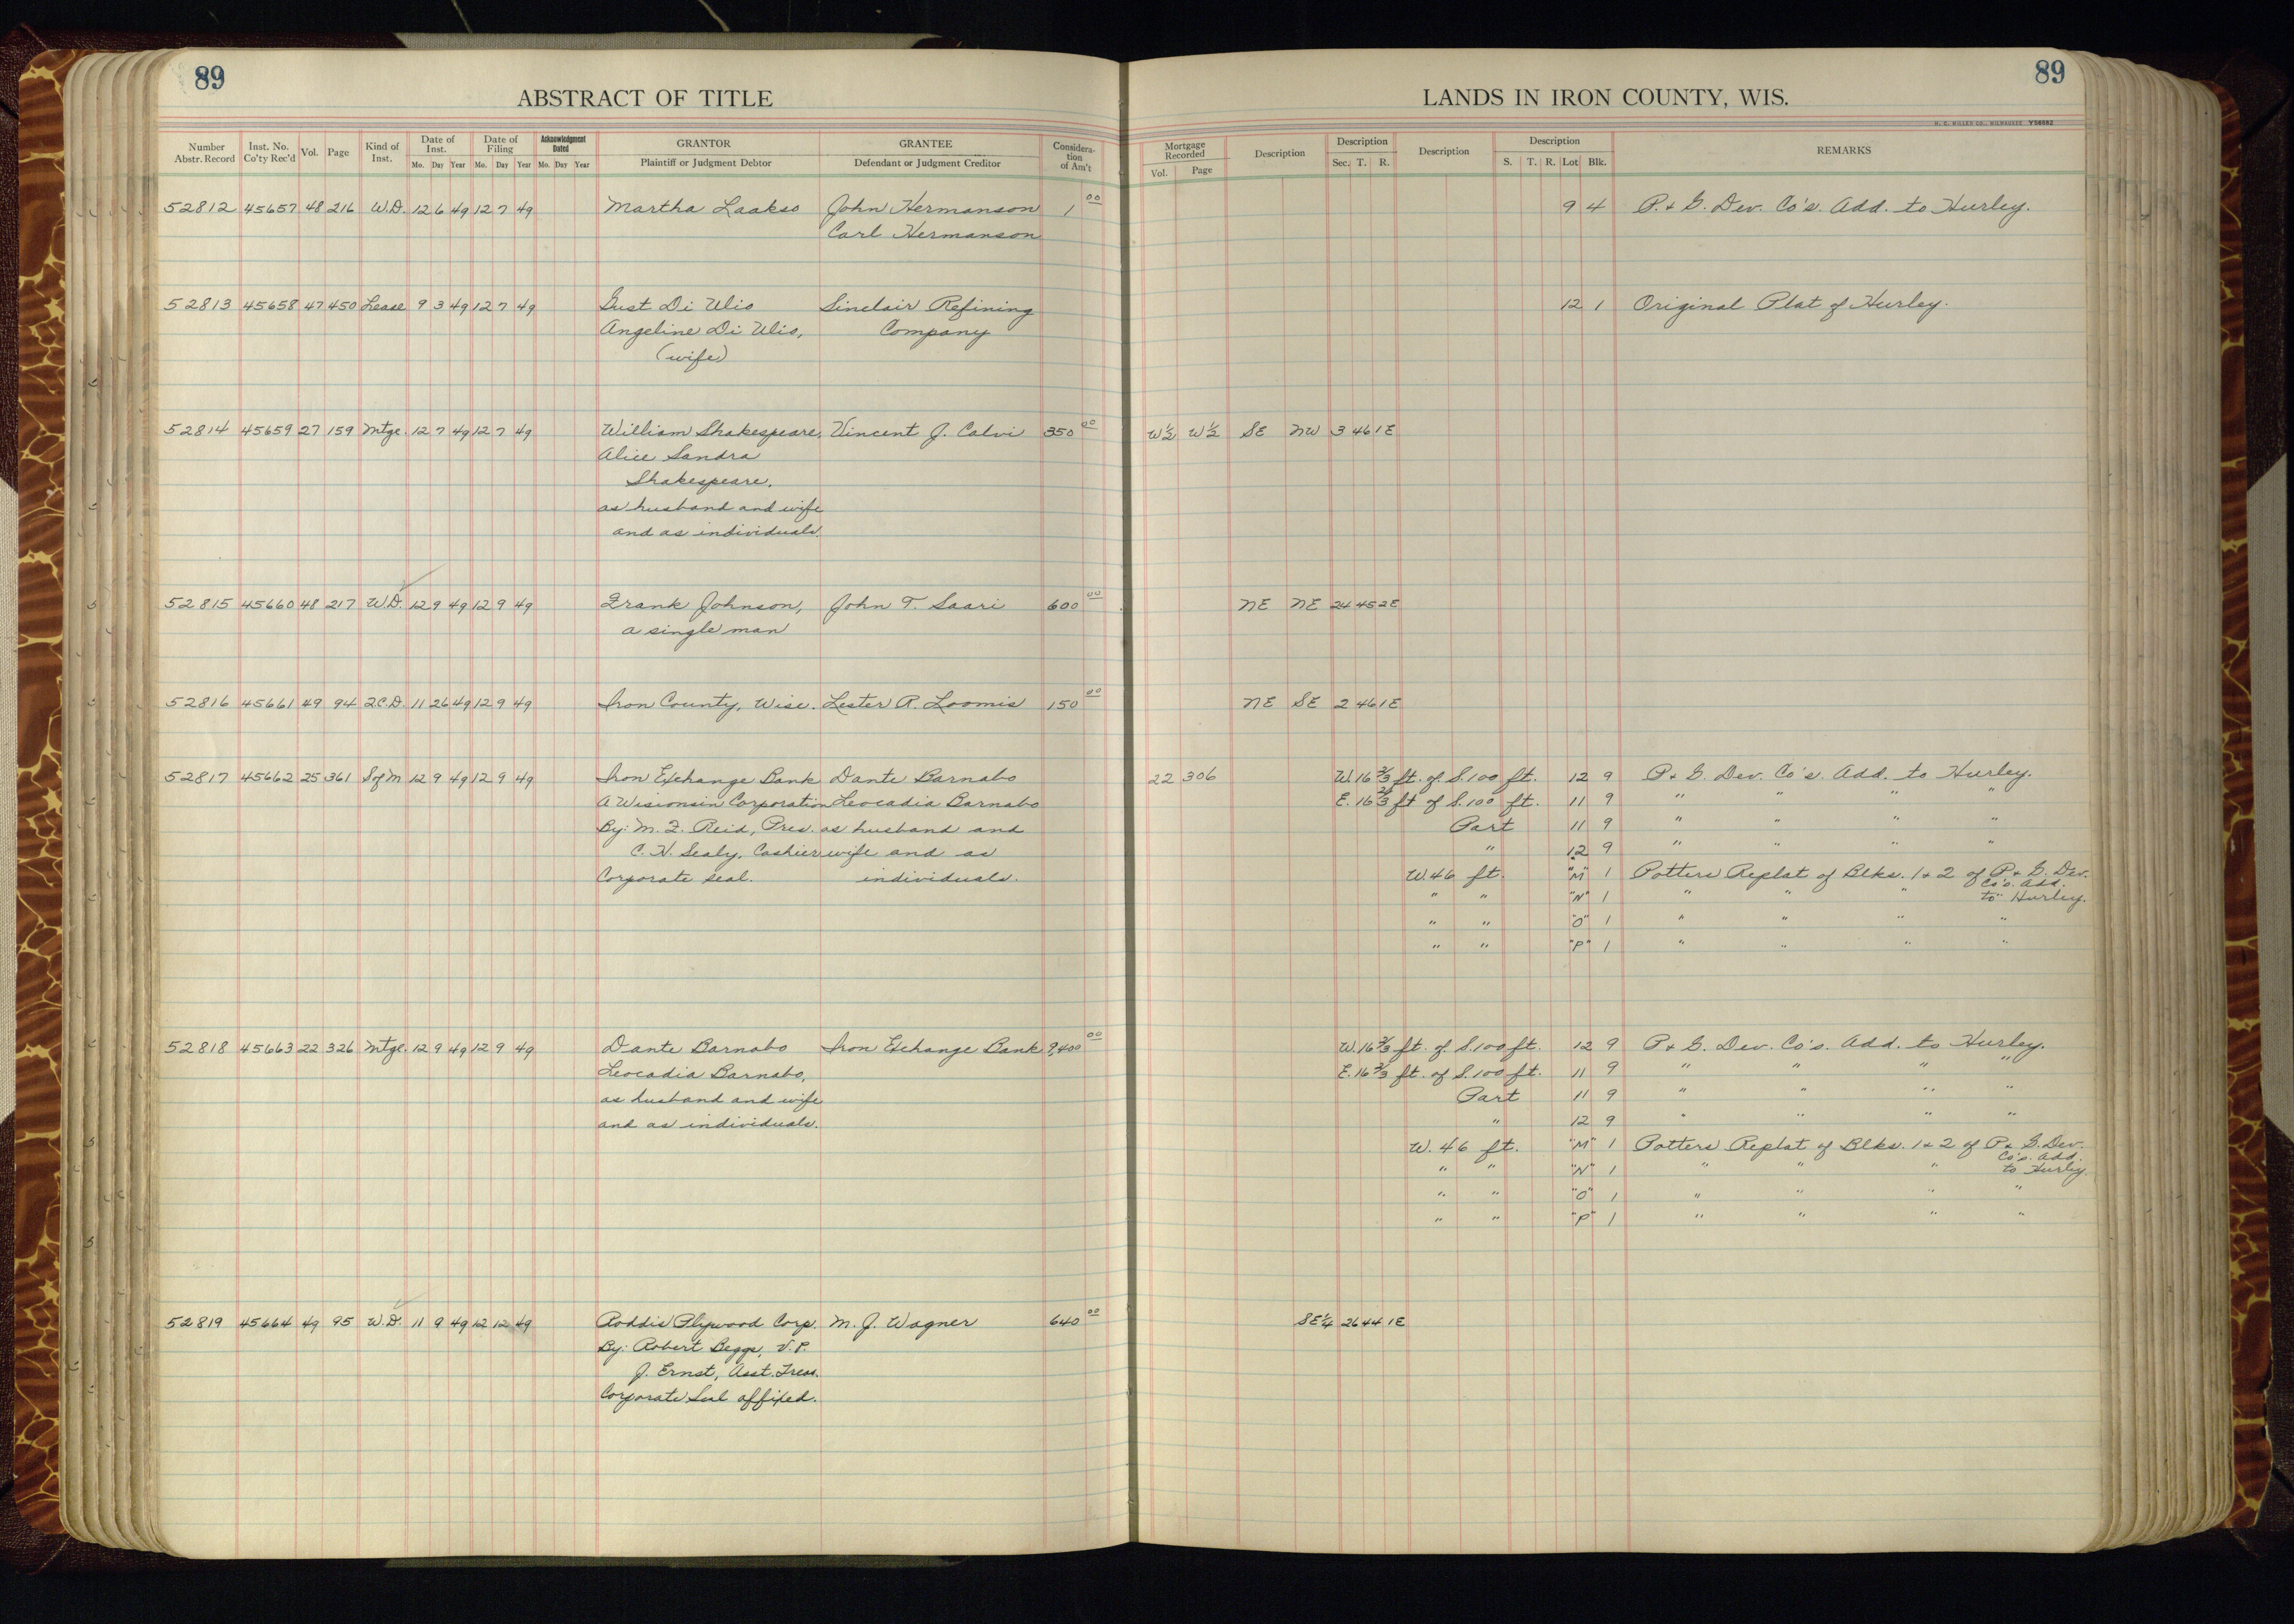 89
89
ABSTRACT OF TITLE
LANDS IN IRON COUNTY, WIS.
H. C. MILLER CO., MILWAUKEE Y56882
Number Abstr. Record Inst. No. Co'ty Rec'd Vol. Page Kind of Inst. Date of Inst. Mo. Day Year Date of Filing Mo. Day Year Acknowledgment Dated Mo. Day Year GRANTOR Plaintiff or Judgment Debtor GRANTEE Defendant or Judgment Creditor Consideration of Am't
Mortgage Recorded Vol. Page Description Description Sec. T. R. Description Description S. T. R. Lot Blk. REMARKS
52812 45657 48 216 W.D. 12 6 49 12 7 49 Martha Laakso John Hermanson 1 00 9 4 P. & G. Dev. Co's. Add. to Hurley.
Carl Hermanson
52813 45658 47 450 Lease 9 3 49 12 7 49 Gust Di Ulio Sinclair Refining 12 1 Original Plat of Hurley.
Angeline Di Ulio, Company
(wife)
52814 45659 27 159 Mtge. 12 7 49 12 7 49 William Shakespeare, Vincent J. Calvi 350 00 W½ W½ SE NW 3 46 1E
Alice Sandra
Shakespeare.
as husband and wife
and as individuals.
52815 45660 48 217 W.D. 12 9 49 12 9 49 Frank Johnson, John T. Saari 600 00 NE NE 24 45 2E
a single man
52816 45661 49 94 2C.D. 11 26 49 12 9 49 Iron County, Wisc. Lester R. Loomis 150 00 NE SE 2 46 1E
52817 45662 25 361 S of M 12 9 49 12 9 49 Iron Exchange Bank Dante Barnabo 22 306 W. 16 2/3 ft. of S. 100 ft. 12 9 P. & G. Dev. Co's. Add. to Hurley.
A Wisconsin Corporation Leocadia Barnabo E. 16 2/3 ft of S. 100 ft. 11 9 " " " "
By: M. F. Reid, Pres. as husband and Part 11 9 " " " "
C. H. Sealy, Cashier wife and as " 12 9 " " " "
Corporate seal. individuals. W. 46 ft. "M" 1 Potters Replat of Blks. 1 & 2 of P. & G. Dev. Co's. Add.
" " "N" 1 " " " to Hurley.
" " "O" 1 " " " "
" " "P" 1 " " " "
52818 45663 22 326 Mtge. 12 9 49 12 9 49 Dante Barnabo Iron Exchange Bank 9,400 00 W. 16 2/3 ft. of S. 100 ft. 12 9 P. & G. Dev. Co's. Add. to Hurley.
Leocadia Barnabo, E. 16 2/3 ft. of S. 100 ft. 11 9 " " " "
as husband and wife Part 11 9 " " " "
and as individuals. " 12 9 " " " "
W. 46 ft. "M" 1 Potters Replat of Blks. 1 & 2 of P. & G. Dev. Co's. Add.
" " "N" 1 " " " to Hurley.
" " "O" 1 " " " "
" " "P" 1 " " " "
52819 45664 49 95 W.D. 11 9 49 12 12 49 Roddis Plywood Corp. M. J. Wagner 640 00 SE¼ 26 44 1E
By: Robert Beggs, V. P.
J. Ernst, Asst. Treas.
Corporate Seal affixed.